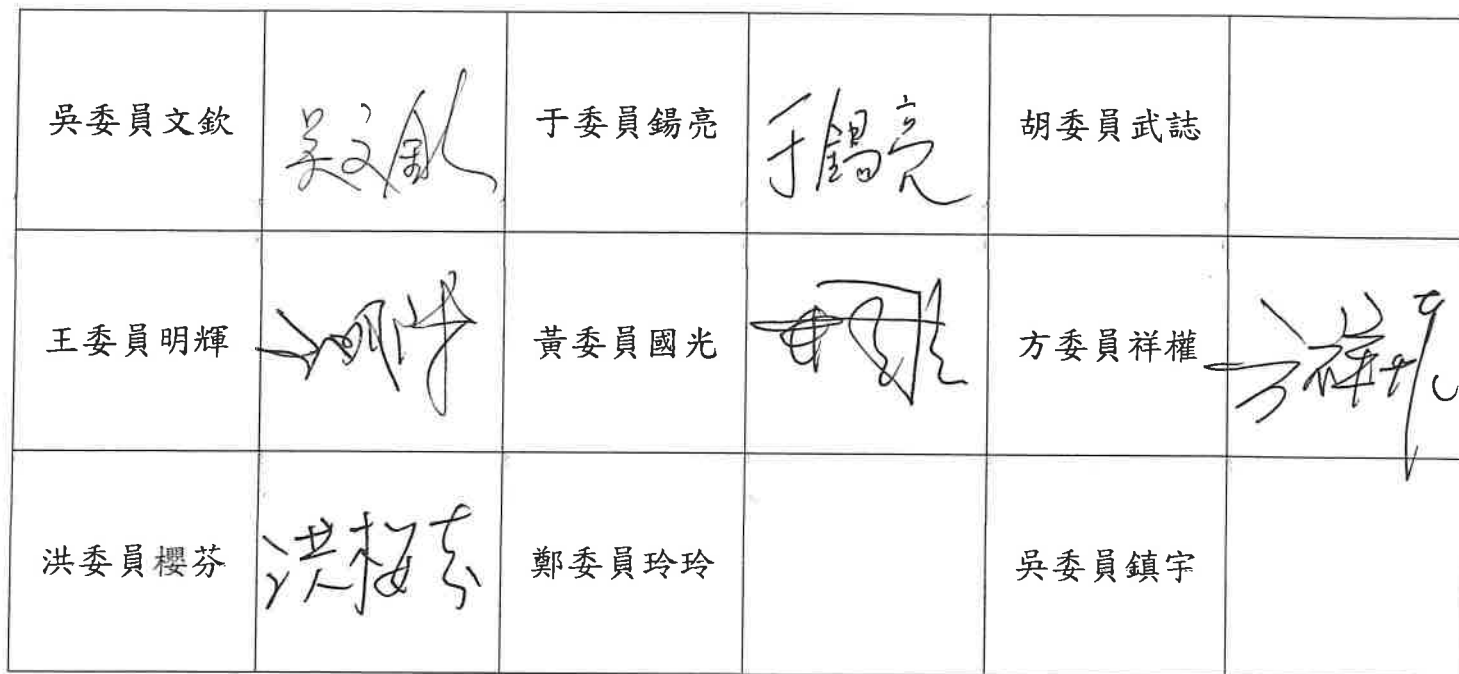 吳委員文欽 吳文欽 于委員錫亮 于錫亮 胡委員武誌
王委員明輝 王明輝 黃委員國光 黃國光 方委員祥權 方祥權
洪委員櫻芬 洪櫻芬 鄭委員玲玲 吳委員鎮宇